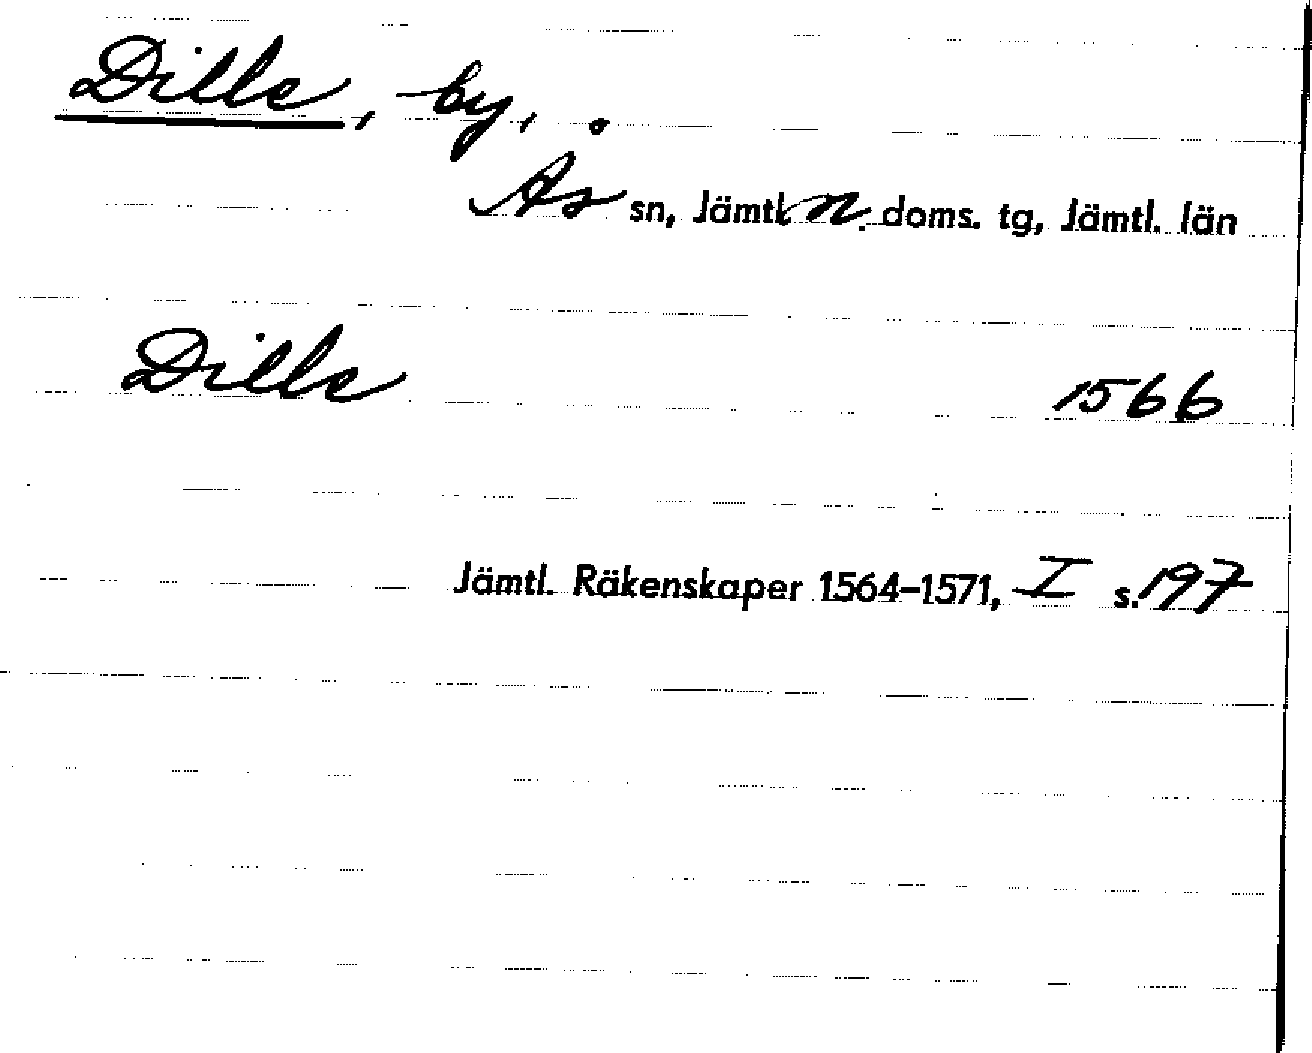 Dille, by,
Ås sn, Jämtl. n. doms. tg, Jämtl. län
Dille 1566
Jämtl. Räkenskaper 1564-1571, I s. 197